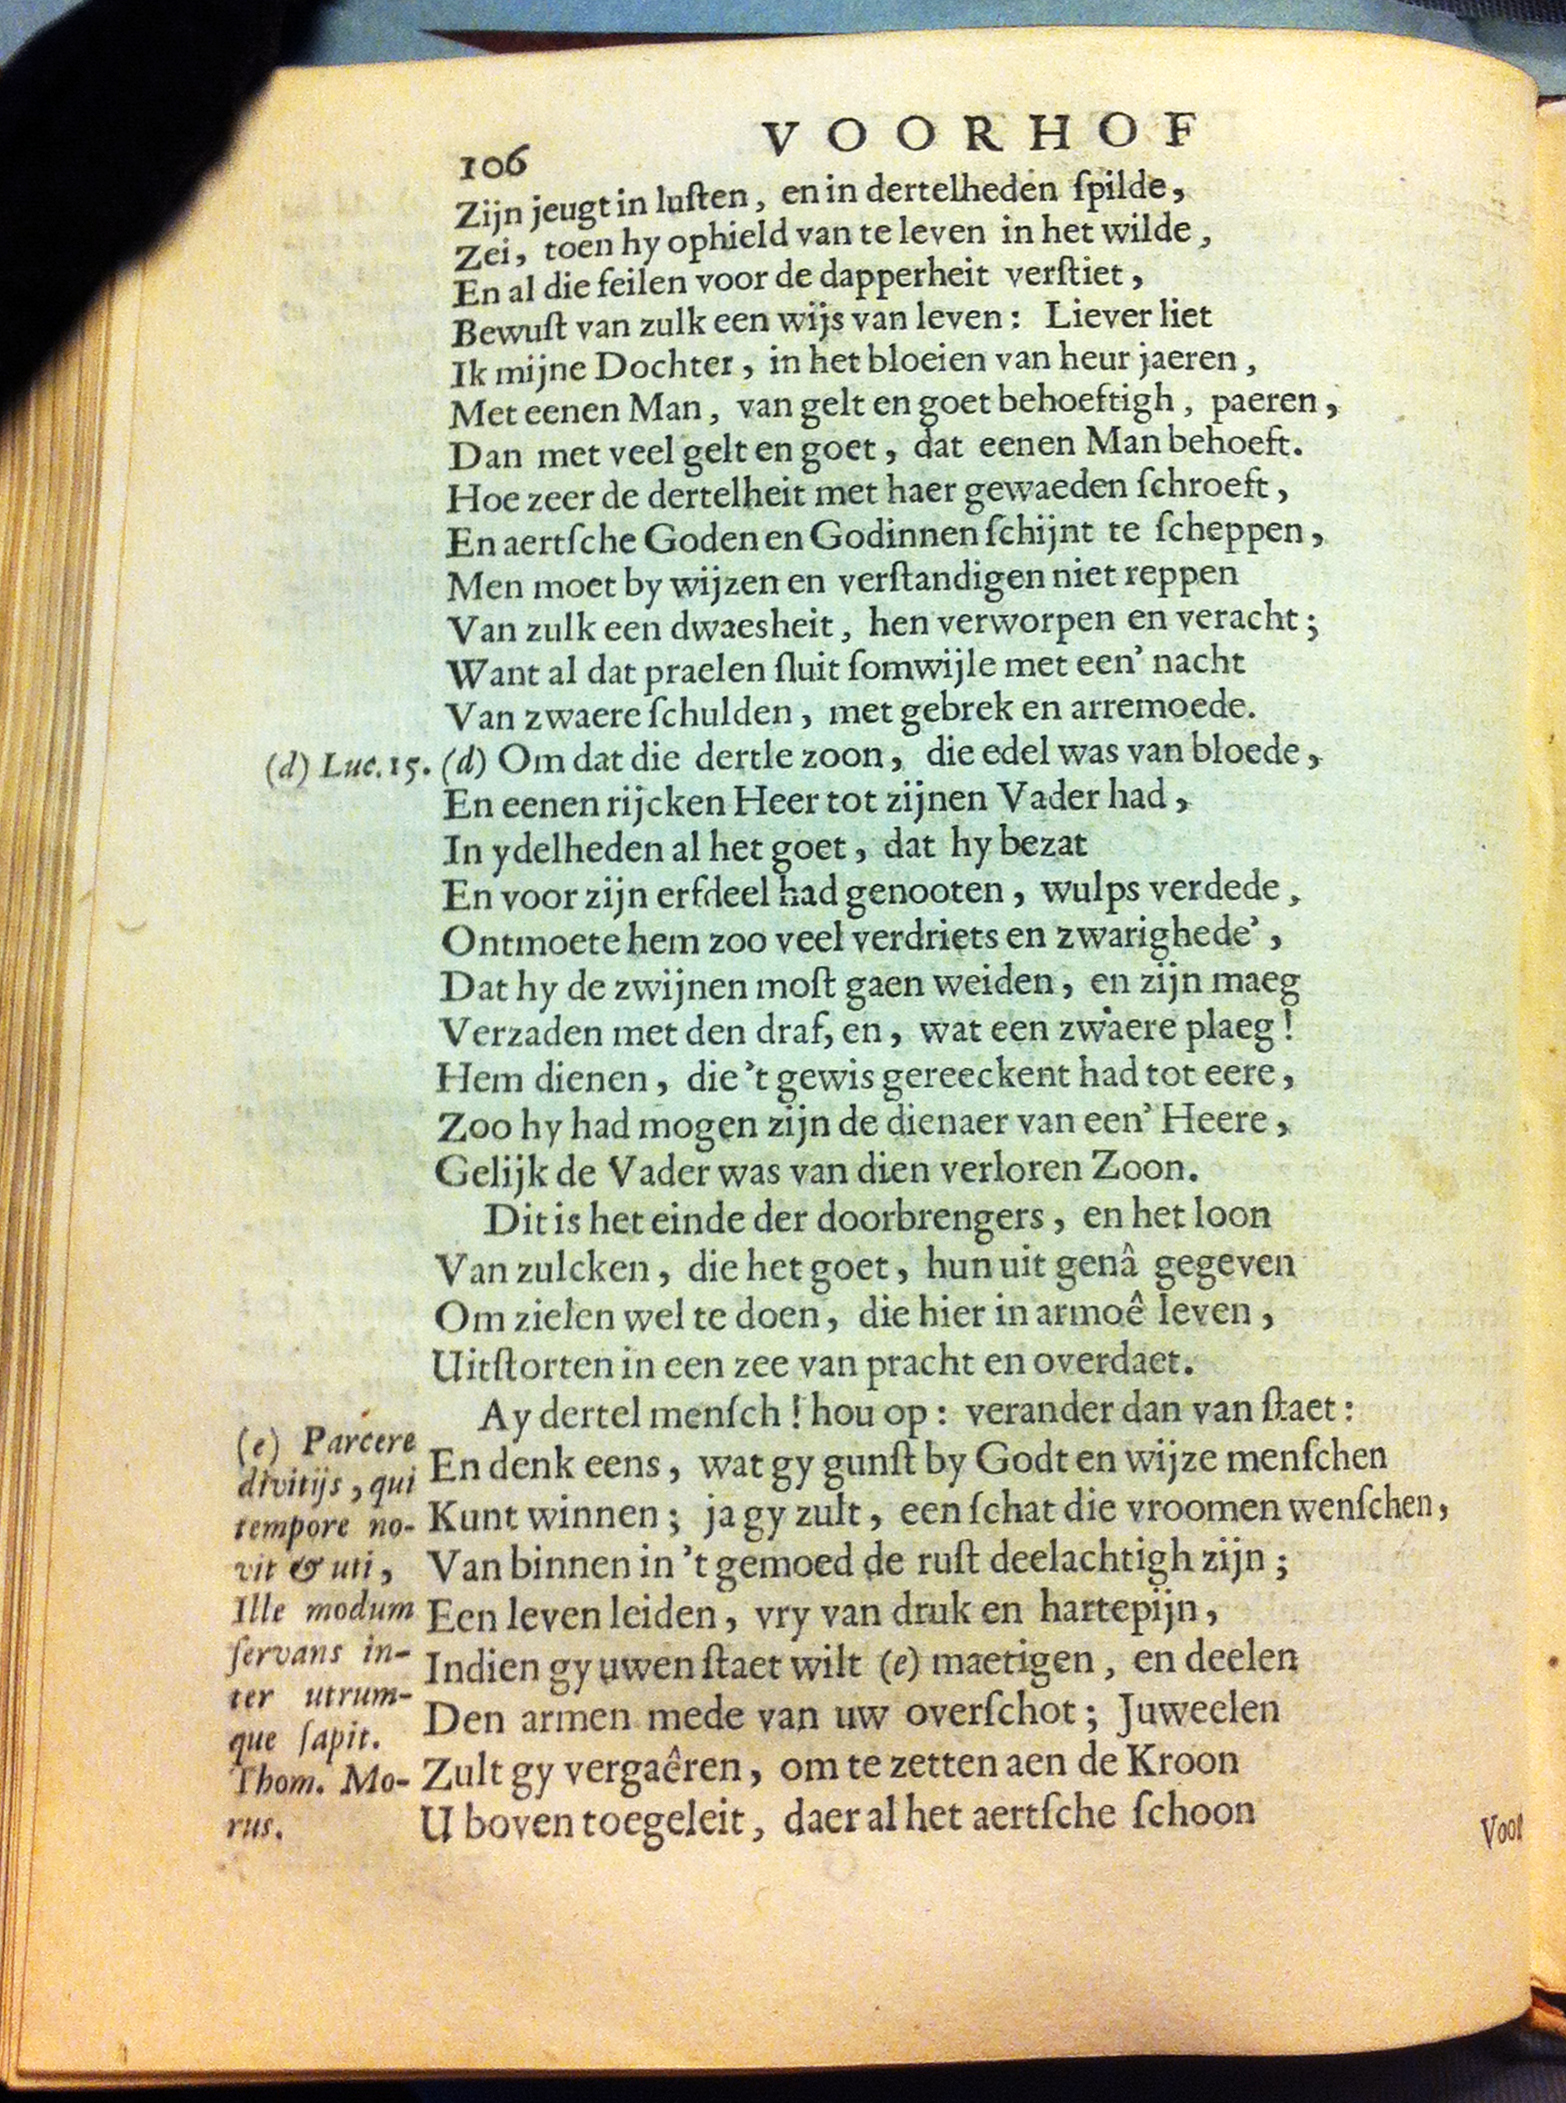 106
VOORHOF
Zijn jeugt in luſten, en in dertelheden ſpilde,
Zei, toen hy ophield van te leven in het wilde,
En al die feilen voor de dapperheit verſtiet,
Bewuſt van zulk een wijs van leven: Liever liet
Ik mijne Dochter, in het bloeien van heur jaeren,
Met eenen Man, van gelt en goet behoeftigh, paeren,
Dan met veel gelt en goet, dat eenen Man behoeft.
Hoe zeer de dertelheit met haer gewaeden ſchroeft,
En aertſche Goden en Godinnen ſchijnt te ſcheppen,
Men moet by wijzen en verſtandigen niet reppen
Van zulk een dwaesheit, hen verworpen en veracht;
Want al dat praelen ſluit ſomwijle met een' nacht
Van zwaere ſchulden, met gebrek en arremoede.
(d) Luc. 15.
(d) Om dat die dertle zoon, die edel was van bloede,
En eenen rijcken Heer tot zijnen Vader had,
In ydelheden al het goet, dat hy bezat
En voor zijn erfdeel had genooten, wulps verdede,
Ontmoete hem zoo veel verdriets en zwarighede',
Dat hy de zwijnen moſt gaen weiden, en zijn maeg
Verzaden met den draf, en, wat een zwaere plaeg!
Hem dienen, die 't gewis gereeckent had tot eere,
Zoo hy had mogen zijn de dienaer van een' Heere,
Gelijk de Vader was van dien verloren Zoon.
Dit is het einde der doorbrengers, en het loon
Van zulcken, die het goet, hun uit genâ gegeven
Om zielen wel te doen, die hier in armoê leven,
Uitſtorten in een zee van pracht en overdaet.
Ay dertel menſch! hou op: verander dan van ſtaet:
En denk eens, wat gy gunſt by Godt en wijze menſchen
Kunt winnen; ja gy zult, een ſchat die vroomen wenſchen,
Van binnen in 't gemoed de ruſt deelachtigh zijn;
Een leven leiden, vry van druk en hartepijn,
Indien gy uwen ſtaet wilt (e) maetigen, en deelen
Den armen mede van uw overſchot; Juweelen
Zult gy vergaêren, om te zetten aen de Kroon
U boven toegeleit, daer al het aertſche ſchoon
(e) Parcere
divitijs, qui
tempore no-
vit & uti,
Ille modum
ſervans in-
ter utrum-
que ſapit.
Thom. Mo-
rus.
Voor